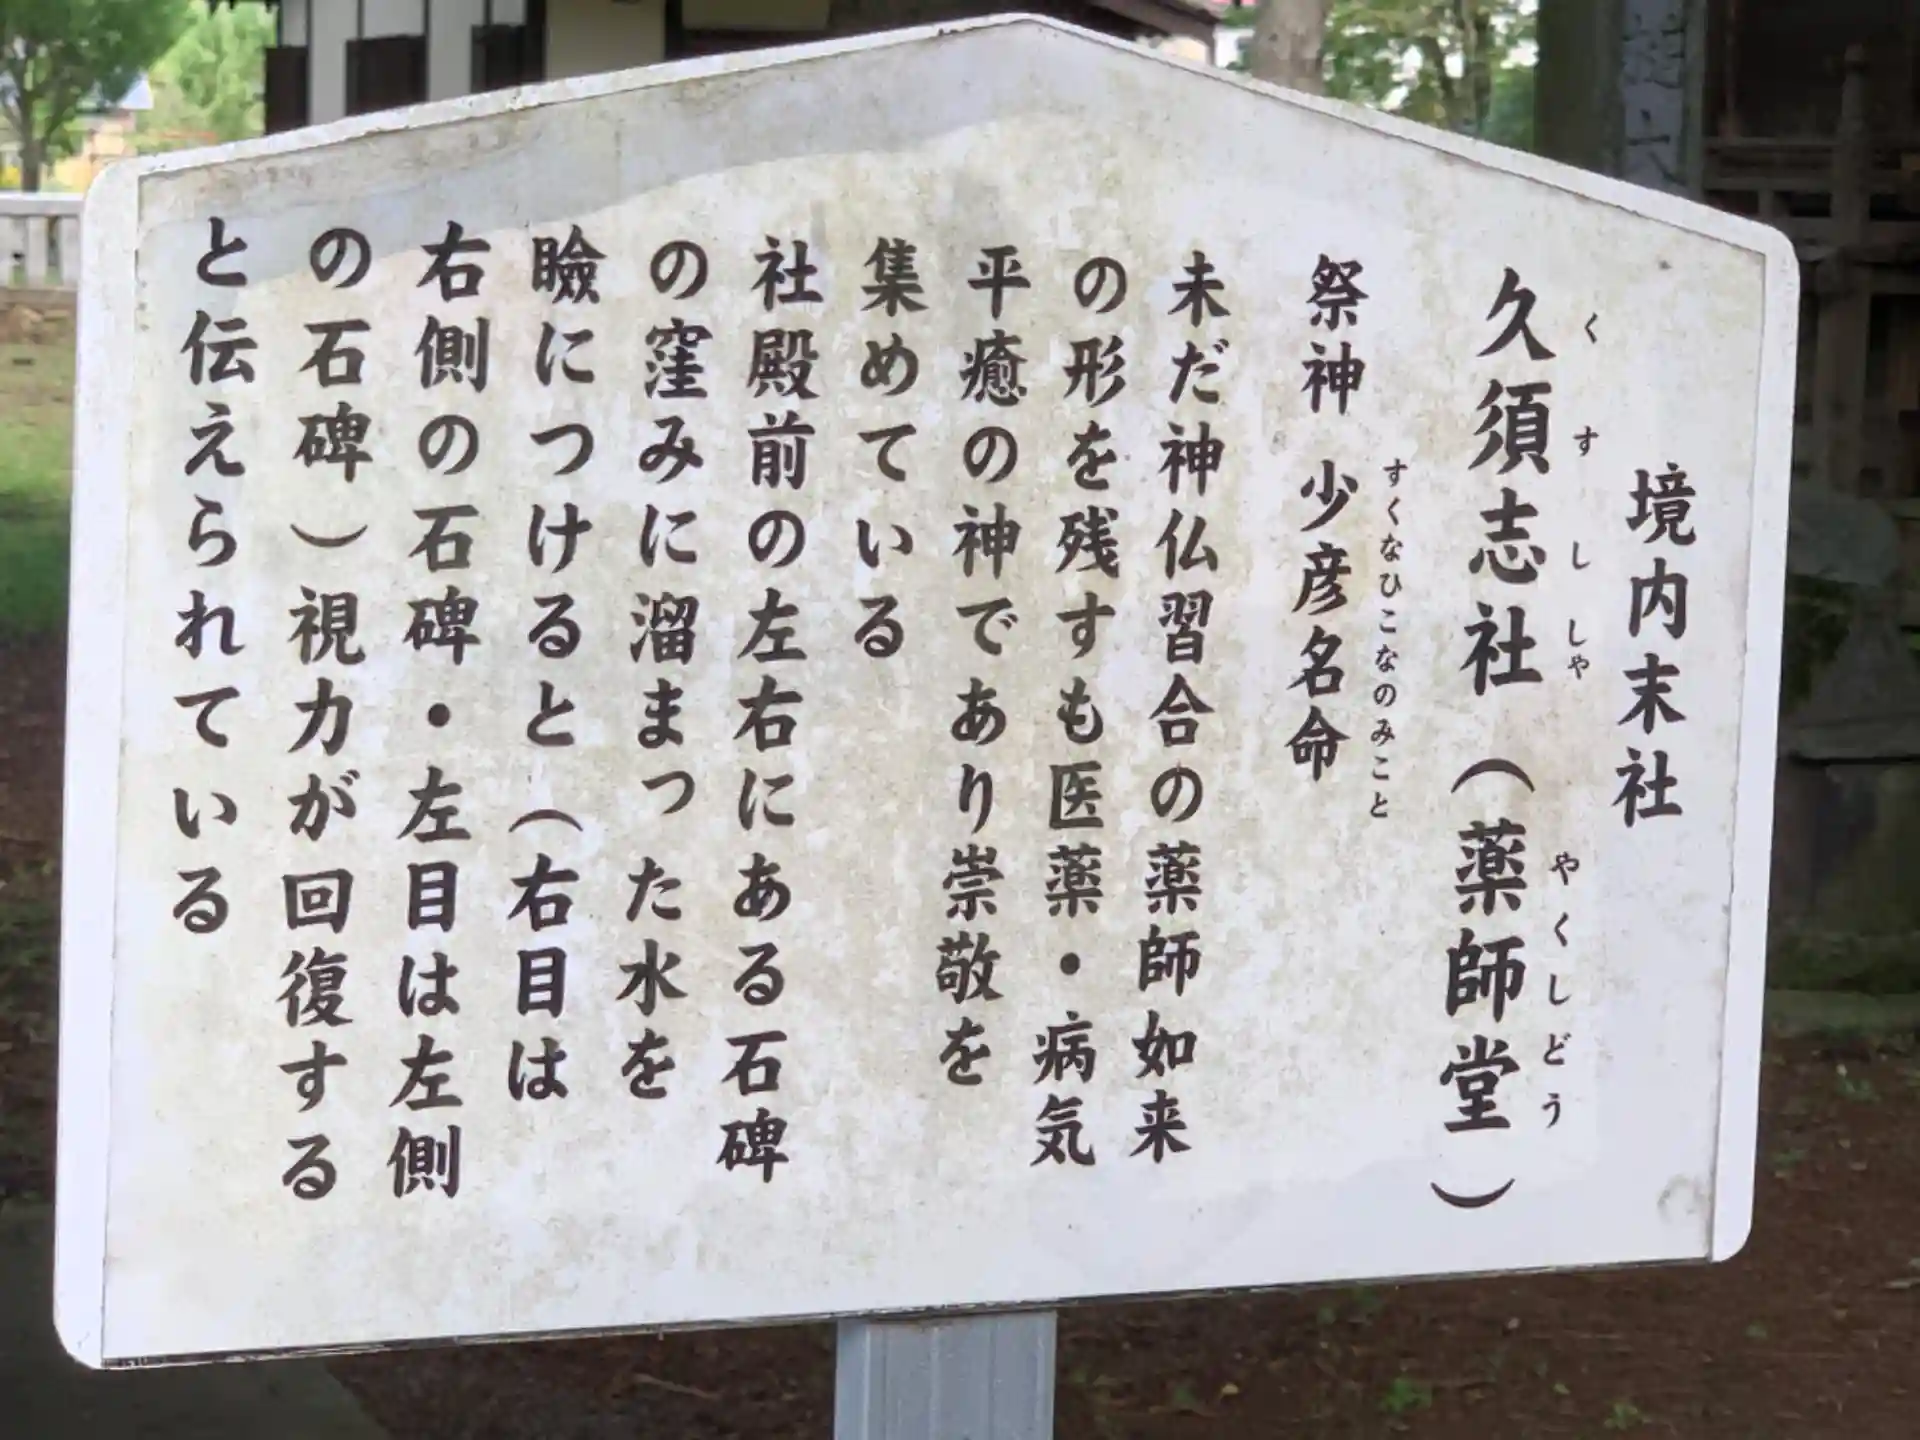 境内末社
久須志社（薬師堂）
くすししゃ やくしどう
祭神 少彦名命
すくなひこなのみこと
未だ神仏習合の薬師如来
の形を残すも医薬・病気
平癒の神であり崇敬を
集めている
社殿前の左右にある石碑
の窪みに溜まった水を
瞼につけると（右目は
右側の石碑・左目は左側
の石碑）視力が回復する
と伝えられている